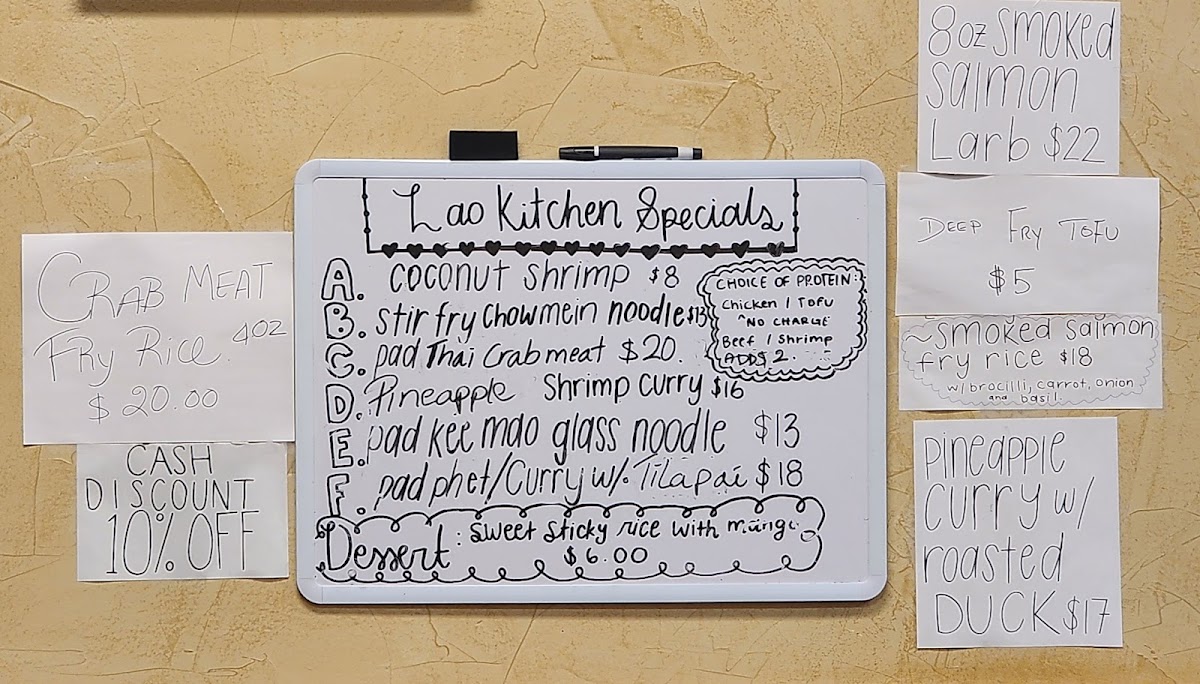 CRAB MEAT
FRY RICE. 4OZ
$ 20.00
CASH
DISCOUNT
10% OFF
Lao Kitchen Specials
A. coconut shrimp $8
B. stir fry Chowmein noodle $13
C. pad Thai Crabmeat $20.
D. Pineapple Shrimp curry $16
E. pad kee mao glass noodle $13
F. pad phet/Curry w/. Tilapai $18
CHOICE OF PROTEIN:
Chicken / TOFU
^NO CHARGE
Beef / Shrimp
ADD$ 2.
Dessert: Sweet Sticky rice with mango
$6.00
8oz Smoked
Salmon
Larb $22
DEEP FRY TOFU
$5
~Smoked Salmon
fry rice $18
w/ brocilli, carrot, onion
and basil.
pineapple
curry w/
roasted
DUCK $17